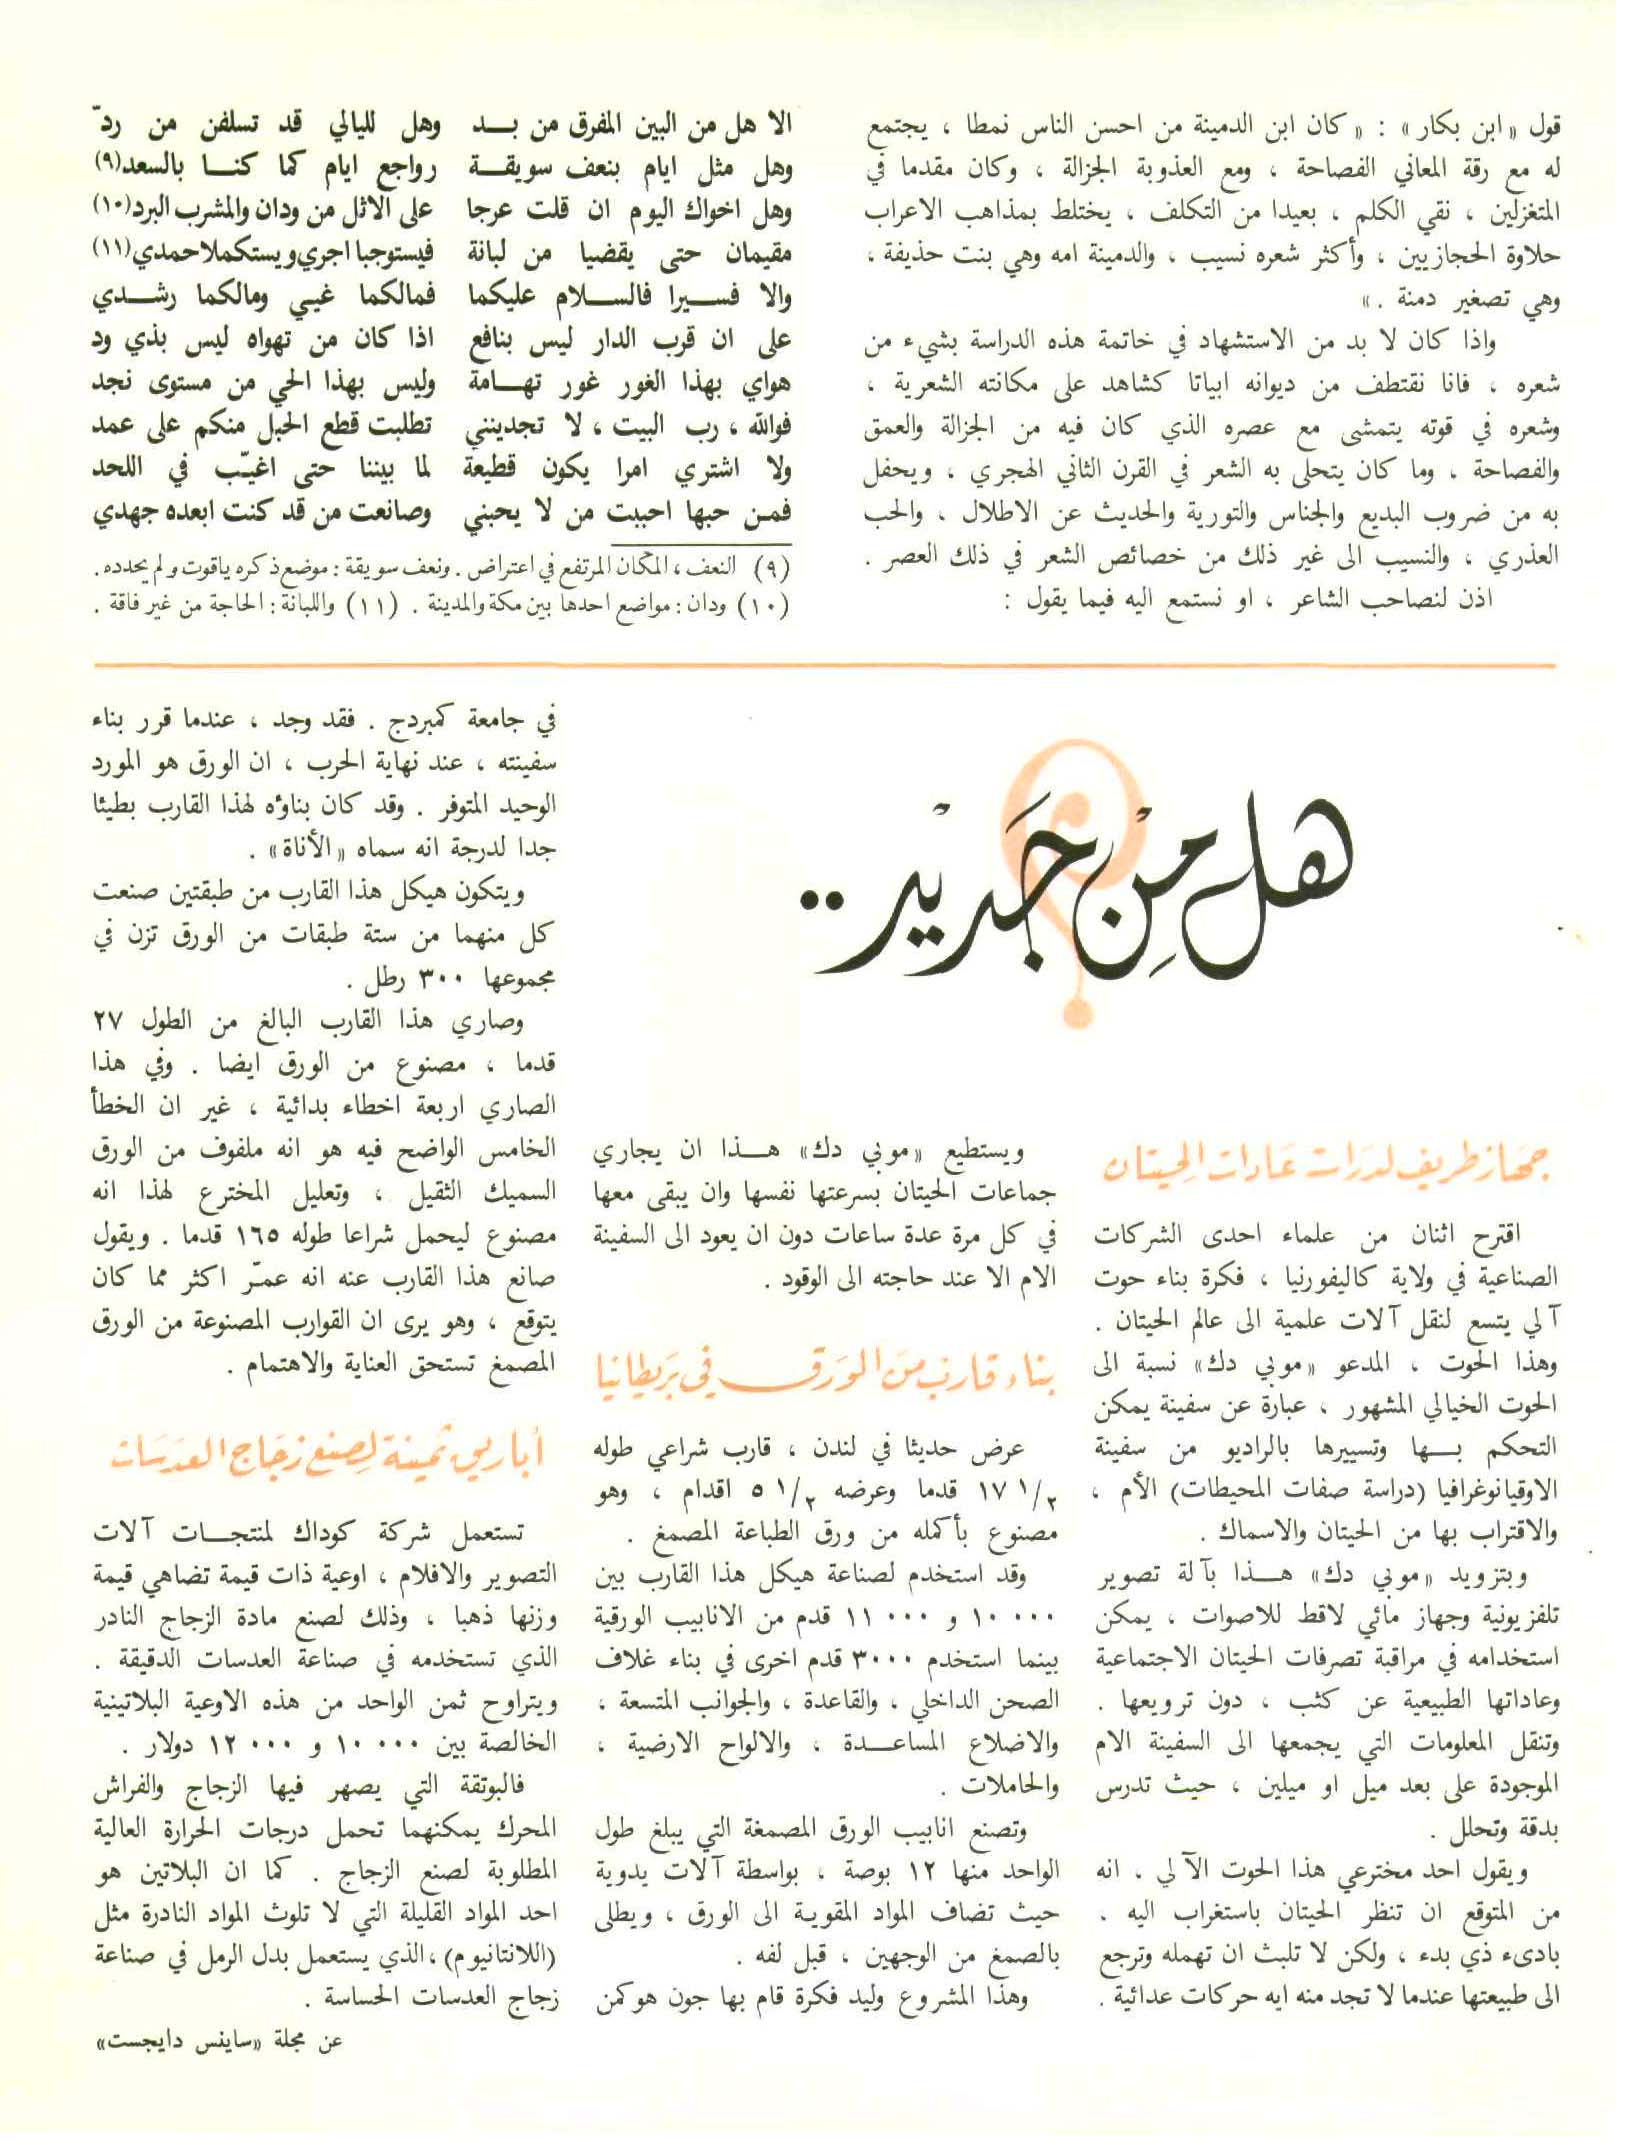 قول «ابن بكار» : «كان ابن الدمينة من احسن الناس نمطا ، يجتمع
له مع رقة المعاني الفصاحة ، ومع العذوبة الجزالة ، وكان مقدما في
المتغزلين ، نقي الكلم ، بعيدا من التكلف ، يختلط بمذاهب الاعراب
حلاوة الحجازيين ، وأكثر شعره نسيب ، والدمينة امه وهي بنت حذيفة ،
وهي تصغير دمنة .»
واذا كان لا بد من الاستشهاد في خاتمة هذه الدراسة بشيء من
شعره ، فانا نقتطف من ديوانه ابياتا كشاهد على مكانته الشعرية ،
وشعره في قوته يتمشى مع عصره الذي كان فيه من الجزالة والعمق
والفصاحة ، وما كان يتحلى به الشعر في القرن الثاني الهجري ، ويحفل
به من ضروب البديع والجناس والتورية والحديث عن الاطلال ، والحب
العذري ، والنسيب الى غير ذلك من خصائص الشعر في ذلك العصر .
اذن لنصاحب الشاعر ، او نستمع اليه فيما يقول :
الا هل من البين المفرق من بد وهل لليالي قد تسلفن من ردّ
وهل مثل ايام بنعف سويقة رواجع ايام كما كنا بالسعد(٩)
وهل اخواك اليوم ان قلت عرجا على الاثل من ودان والمشرب البرد(١٠)
مقيمان حتى يقضيا من لبانة فيستوجبا اجري ويستكملا حمدي(١١)
والا فسيرا فالسلام عليكما فمالكما غيي ومالكما رشدي
على ان قرب الدار ليس بنافع اذا كان من تهواه ليس بذي ود
هواي بهذا الغور غور تهامة وليس بهذا الحي من مستوى نجد
فوالله ، رب البيت ، لا تجدينني تطلبت قطع الحبل منكم على عمد
ولا اشتري امرا يكون قطيعة لما بيننا حتى اغيّب في اللحد
فمن حبها احببت من لا يحبني وصانعت من قد كنت ابعده جهدي
(٩) النعف ، المكان المرتفع في اعتراض . ونعف سويقة : موضع ذكره ياقوت ولم يحدده .
(١٠) ودان : مواضع احدها بين مكة والمدينة . (١١) واللبانة : الحاجة من غير فاقة .
هل من جديد ..
جهاز طريف لدراسة عادات الحيتان
اقترح اثنان من علماء احدى الشركات
الصناعية في ولاية كاليفورنيا ، فكرة بناء حوت
آلي يتسع لنقل آلات علمية الى عالم الحيتان .
وهذا الحوت ، المدعو «موبي دك» نسبة الى
الحوت الخيالي المشهور ، عبارة عن سفينة يمكن
التحكم بها وتسييرها بالراديو من سفينة
الاوقيانوغرافيا (دراسة صفات المحيطات) الأم ،
والاقتراب بها من الحيتان والاسماك .
وبتزويد «موبي دك» هذا بآلة تصوير
تلفزيونية وجهاز مائي لاقط للاصوات ، يمكن
استخدامه في مراقبة تصرفات الحيتان الاجتماعية
وعاداتها الطبيعية عن كثب ، دون ترويعها .
وتنقل المعلومات التي يجمعها الى السفينة الام
الموجودة على بعد ميل او ميلين ، حيث تدرس
بدقة وتحلل .
ويقول احد مخترعي هذا الحوت الآلي ، انه
من المتوقع ان تنظر الحيتان باستغراب اليه ،
بادىء ذي بدء ، ولكن لا تلبث ان تهمله وترجع
الى طبيعتها عندما لا تجد منه ايه حركات عدائية .
ويستطيع «موبي دك» هذا ان يجاري
جماعات الحيتان بسرعتها نفسها وان يبقى معها
في كل مرة عدة ساعات دون ان يعود الى السفينة
الام الا عند حاجته الى الوقود .
بناء قارب من الورق في بريطانيا
عرض حديثا في لندن ، قارب شراعي طوله
١٧ ١/٢ قدما وعرضه ٥ ١/٢ اقدام ، وهو
مصنوع بأكمله من ورق الطباعة المصمغ .
وقد استخدم لصناعة هيكل هذا القارب بين
١٠٠٠٠ و ١١٠٠٠ قدم من الانابيب الورقية
بينما استخدم ٣٠٠٠ قدم اخرى في بناء غلاف
الصحن الداخلي ، والقاعدة ، والجوانب المتسعة ،
والاضلاع المساعدة ، والالواح الارضية ،
والحاملات .
وتصنع انابيب الورق المصمغة التي يبلغ طول
الواحد منها ١٢ بوصة ، بواسطة آلات يدوية
حيث تضاف المواد المقوية الى الورق ، ويطلى
بالصمغ من الوجهين ، قبل لفه .
وهذا المشروع وليد فكرة قام بها جون هوكمن
في جامعة كمبردج . فقد وجد ، عندما قرر بناء
سفينته ، عند نهاية الحرب ، ان الورق هو المورد
الوحيد المتوفر . وقد كان بناؤه لهذا القارب بطيئا
جدا لدرجة انه سماه «الأناة» .
ويتكون هيكل هذا القارب من طبقتين صنعت
كل منهما من ستة طبقات من الورق تزن في
مجموعها ٣٠٠ رطل .
وصاري هذا القارب البالغ من الطول ٢٧
قدما ، مصنوع من الورق ايضا . وفي هذا
الصاري اربعة اخطاء بدائية ، غير ان الخطأ
الخامس الواضح فيه هو انه ملفوف من الورق
السميك الثقيل ، وتعليل المخترع لهذا انه
مصنوع ليحمل شراعا طوله ١٦٥ قدما . ويقول
صانع هذا القارب عنه انه عمّر اكثر مما كان
يتوقع ، وهو يرى ان القوارب المصنوعة من الورق
المصمغ تستحق العناية والاهتمام .
أباريق ثمينة لصنع زجاج العدسات
تستعمل شركة كوداك لمنتجات آلات
التصوير والافلام ، اوعية ذات قيمة تضاهي قيمة
وزنها ذهبا ، وذلك لصنع مادة الزجاج النادر
الذي تستخدمه في صناعة العدسات الدقيقة .
ويتراوح ثمن الواحد من هذه الاوعية البلاتينية
الخالصة بين ١٠٠٠٠ و ١٢٠٠٠ دولار .
فالبوتقة التي يصهر فيها الزجاج والفراش
المحرك يمكنهما تحمل درجات الحرارة العالية
المطلوبة لصنع الزجاج . كما ان البلاتين هو
احد المواد القليلة التي لا تلوث المواد النادرة مثل
(اللانتانيوم) ، الذي يستعمل بدل الرمل في صناعة
زجاج العدسات الحساسة .
عن مجلة «ساينس دايجست»